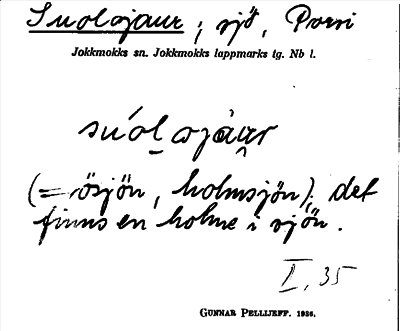 Suolojaur, sjö, Porsi
Jokkmokks sn. Jokkmokks lappmarks tg. Nb l.
súolojàur
(= ösjön, holmsjön); det
finns en holme i sjön.
I, 35
GUNNAR PELLIJEFF. 1936.